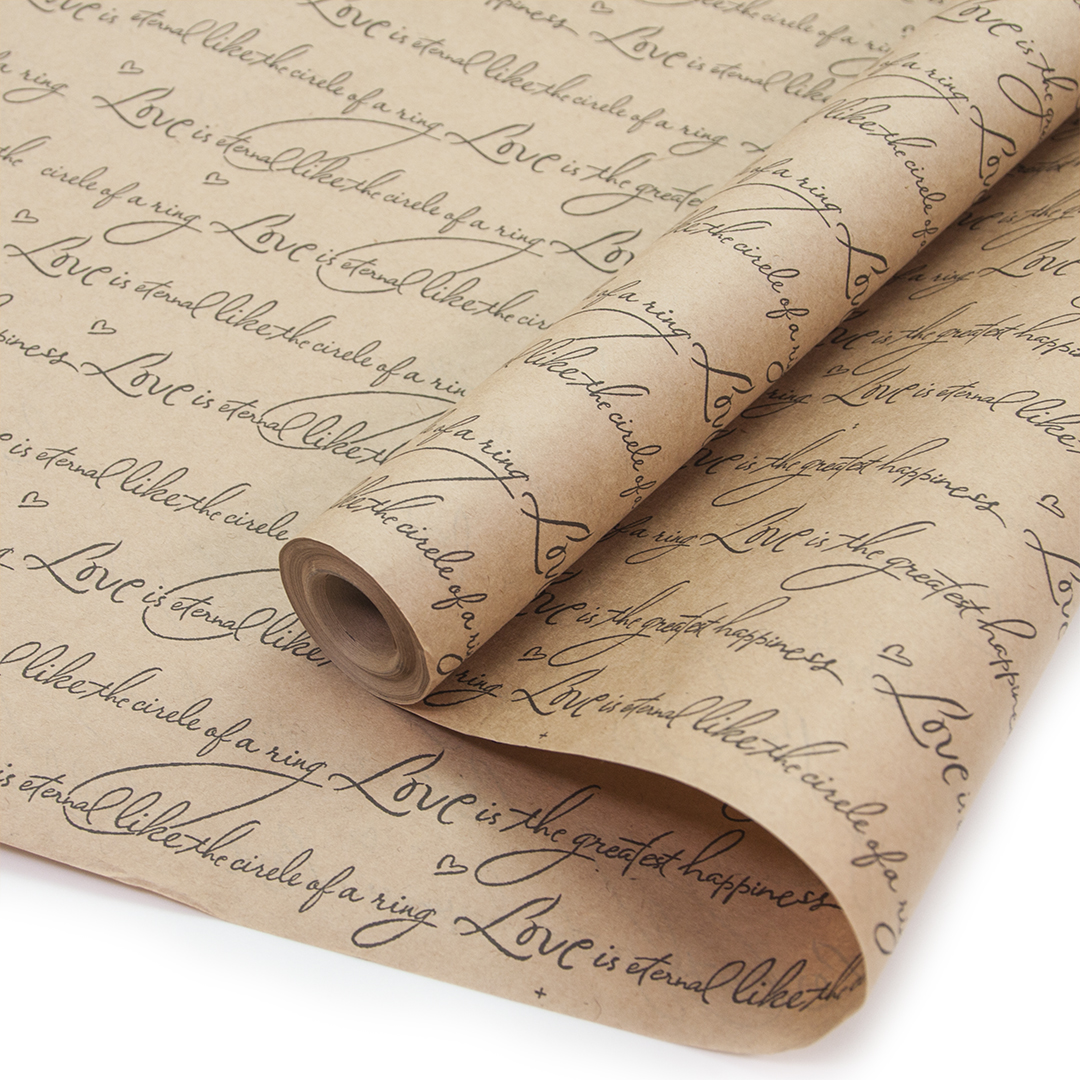 Love is eternal like the circle of a ring
happiness Love is eternal like
is eternal like the circle of a ring Love
a ring Love is eternal like the circle of a ring Love is the greate
the circle of a ring Love is eternal like the cir
Love is eternal like the circle of a rin
piness Love is eternal like
is eternal like the circle
Love is eternal like
like the circle of a ring Love is the greatest happiness
is eternal like the circle of a ring Love is eternal like the
Love is the
of a ring Lov
like the circle of a
of a ring Lov
like the circle of a r
of a ring Lov
like the circle of a
of a ring Lov
like the circle of a ri
is the greatest happi
ring Love is eternal like
is the greatest happiness Love
a ring Love is the greatest happin
is the greatest happiness Love i
ring Love is eternal like the circle of a rin